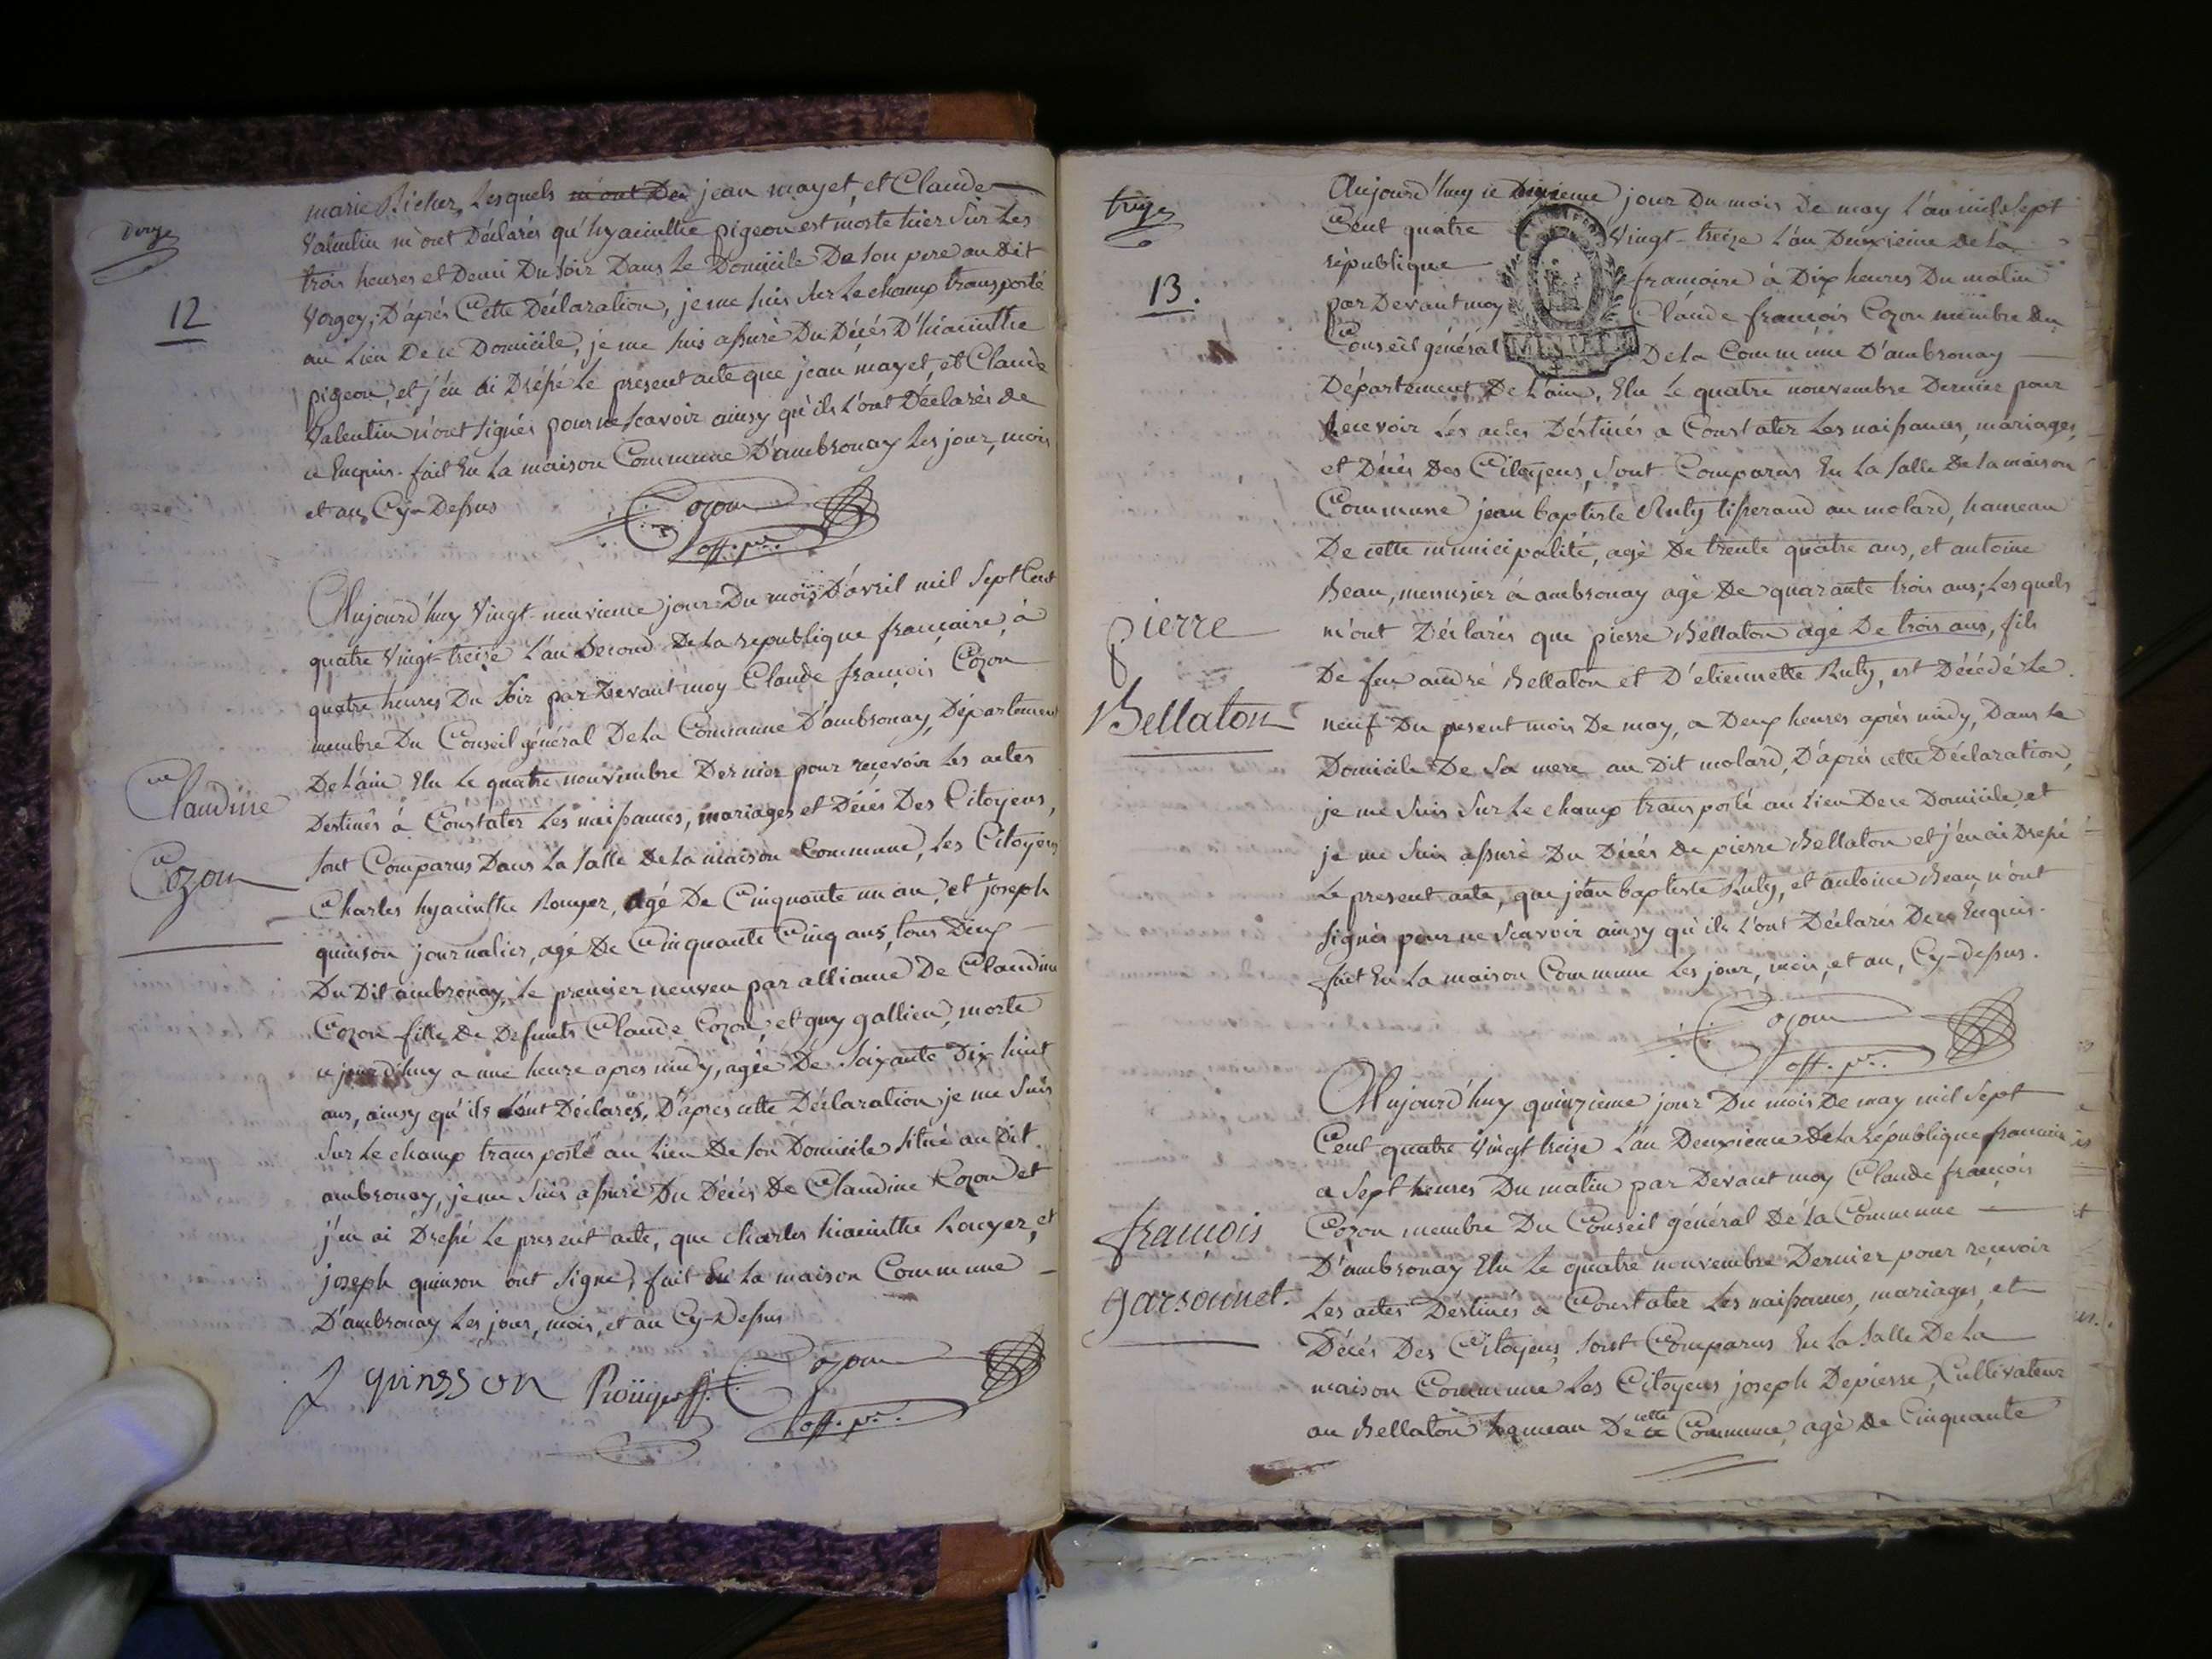 douze
12
marie Richer, Lesquels m'ont Dec jean mayet et Claude
Valentin m'ont Déclarés qu'hyacinthe pigeon est morte hier Sur Les
trois heures et Demi Du Soir Dans Le Domicile De Son pere au Dit
Vorgey; D'après Cette Déclaration, je me suis Sur Le champ transporté
au Lieu De ce Domicile, je me suis assuré Du Décés D'hiacinthe
pigeon, et j'en ai Dréssé Le présent acte que jean mayet, et Claude
Valentin n'ont signés pour ne Scavoir ainsy qu'ils L'ont Déclarés de
ce Enquis. fait En La maison Commune D'ambronay Les jour, mois
et an, Cy-Dessus
Cozon
off. pc.
Claudine
Cozon
Aujourd'huy Vingt-neuvieme jour Du mois D'avril mil Sept Cent
quatre Vingt-treize L'an Second De La république françaire, à
quatre heures Du Soir par Devant moy Claude françois Cozon
membre Du Conseil général De La Commune D'ambronay, Département
De L'ain Elu Le quatre nouvembre Dernier pour recevoir Les actes
Destinés à Constater Les naissances, mariages et Décés Des Citoyens,
Sont Comparus Dans La Salle De La maison Commune, Les Citoyens
Charles hyacinthe Rouyer, âgé De Cinquante un an, et joseph
quinson journalier, agé De Cinquante Cinq ans, tous Deux
Du Dit ambronay, Le premier neuveu par alliance De Claudine
Cozon fille De Defunts Claude Cozon, et guy gallien, morte
ce jourd'huy a une heure apres midy, agée De Soixante Dix huit
ans, ainsy qu'ils L'ont Déclarés, D'apres cette Déclaration je me Suis
Sur Le champ transporté au Lieu De Son Domicile Situé au Dit
ambronay, je me Suis assuré Du Décés De Claudine Cozon et
j'en ai Dressé Le present acte, que charles hiacinthe Rouyer, et
joseph quinson ont Signé, fait En La maison Commune
D'ambronay Les jour, mois, et an Cy-Dessus
J quinsson
Cozon
off. pc.
treize
13.
Aujourd'huy ce Dixieme jour Du mois De may L'an mil Sept
Cent quatre Vingt-treize L'an Deuxieme De La
république françaire à Dix heures Du matin
par Devant moy Claude françois Cozon membre du
Conseil général De La Commune D'ambronay
Département De L'ain, Elu Le quatre nouvembre Dernier pour
Recevoir Les actes Déstinés a Constater Les naissances, mariages,
et Décés Des Citoyens, Sont Comparus En La Salle De La maison
Commune jean baptiste Ruty tisserand au molard, hameau
De cette municipalité, agé De trente quatre ans, et antoine
Beau, menusier à ambronay agé De quarante trois ans; Lesquels
m'ont Déclarés que pierre Bellaton agé De trois ans, fils
De feu andré Bellaton et D'etiennette Ruty, est Décédé Le
neuf Du present mois De may, a Deux heures aprés midy, Dans Le
Domicile De Sa mere au Dit molard, D'aprés cette Déclaration,
je me Suis Sur Le champ transporté au Lieu De ce Domicile, et
je me Suis assuré Du Décés De pierre Bellaton et j'en ai Dressé
Le present acte, que jean baptiste Ruty, et antoine Beau, n'ont
Signés pour ne Scavoir ainsy qu'ils L'ont Déclarés De ce Enquis.
fait En La maison Commune Les jour, mois, et an, Cy-dessus.
pierre
Bellaton
Cozon
off. pc.
Aujourd'huy quinzieme jour Du mois De may mil Sept
Cent quatre Vingt treize L'an Deuxieme De La république francaire
a Sept heures Du matin par Devant moy Claude françois
Cozon membre Du Conseil général De La Commune
D'ambronay Elu Le quatre nouvembre Dernier pour recevoir
Les actes Déstinés a Constater Les naissances, mariages, et
Décés Des Citoyens, Sont Comparus En La Salle De La
maison Commune Les Citoyens joseph Depierre, Cultivateur
au Bellaton hameau De ce cette Commune, agé de Cinquante
françois
garsonnet.